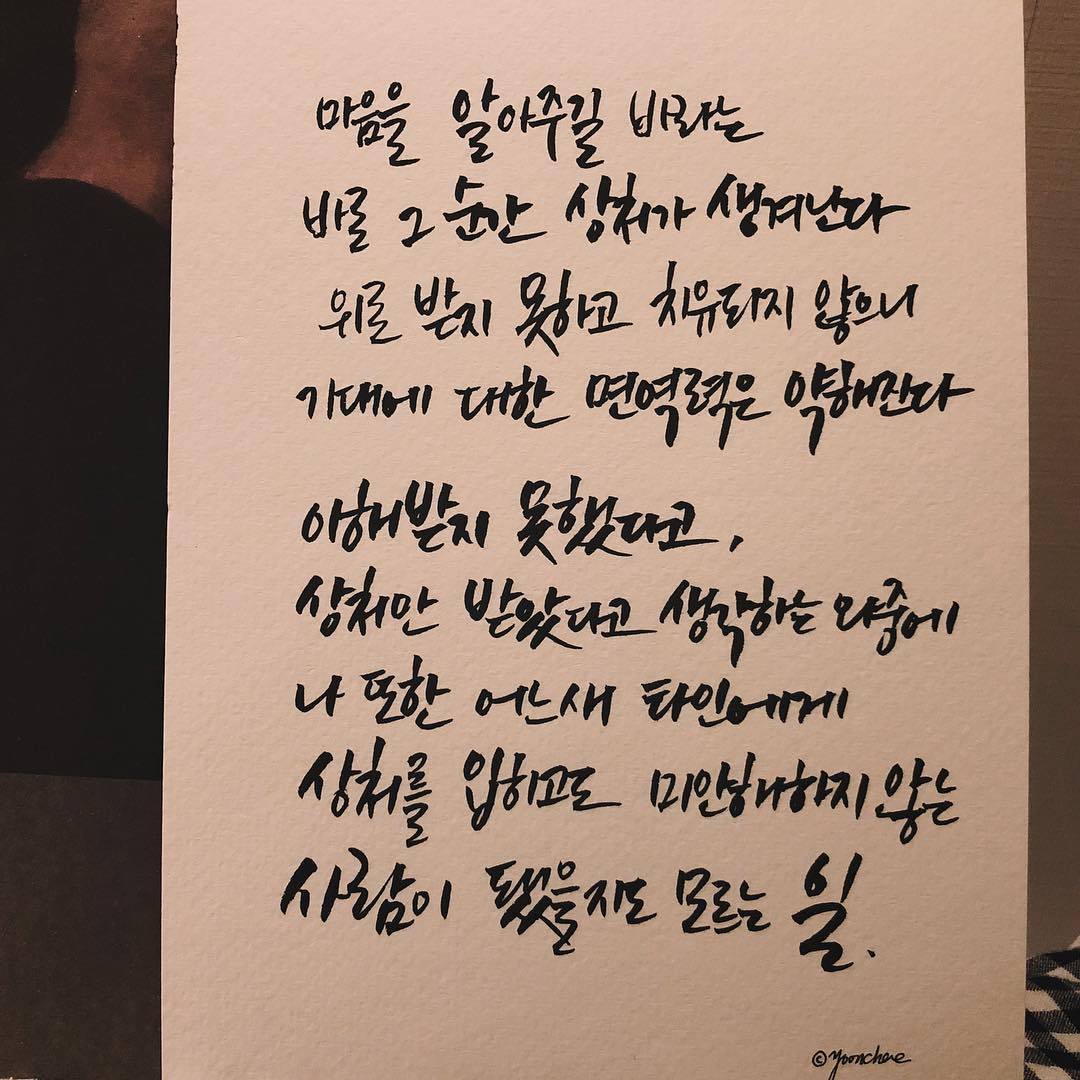 마음을 알아주길 바라는
바로 그 순간 상처가 생겨난다
위로 받지 못하고 치유되지 않으니
기대에 대한 면역력은 약해진다
이해받지 못했다고,
상처만 받았다고 생각하는 와중에
나 또한 어느새 타인에게
상처를 입히고도 미안해하지 않는
사람이 됐을지도 모르는 일.
©yoonchere